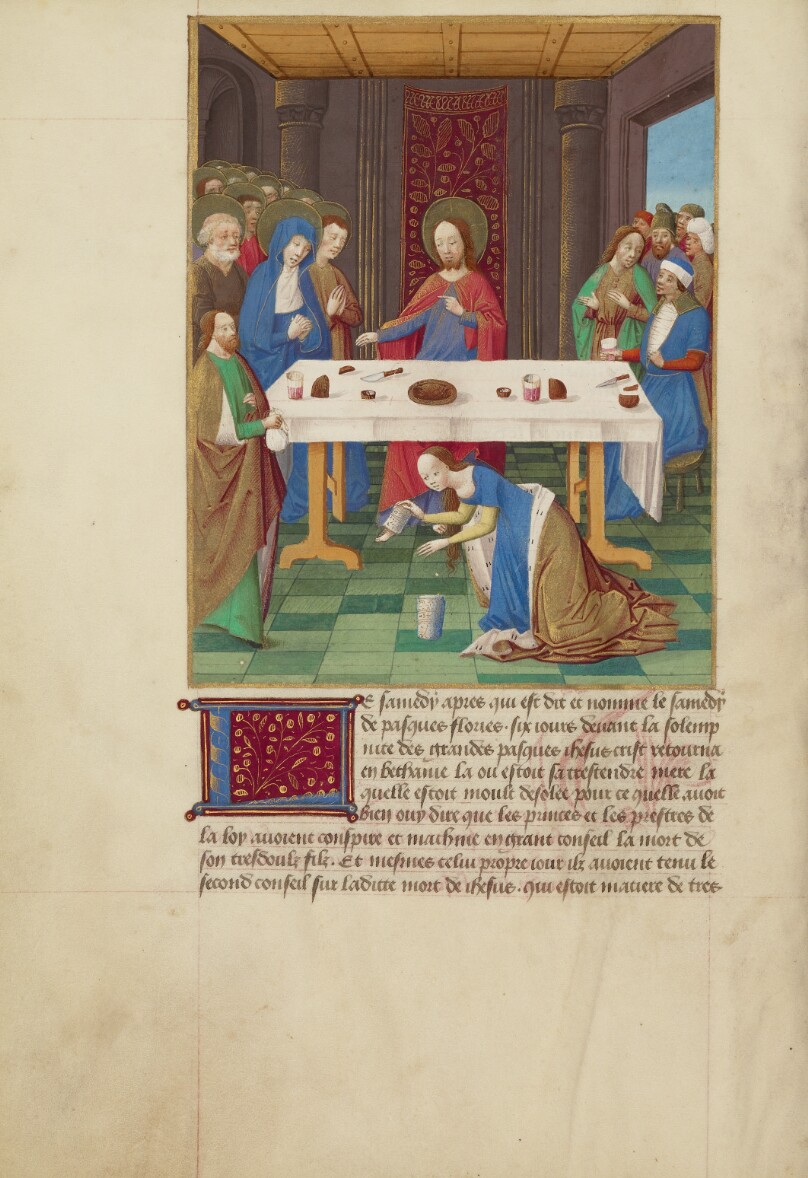 Le samedy apres qui est dit et nomme le samedy
de pasques flories. six iours deuant la solemp
nite des grandes pasques ihesus crist retourna
en bethanie la ou estoit sa trestendre mere la
quelle estoit moult desolee pour ce quelle auoit
bien ouy dire que les princes et les prestres de
la loy auoient conspire et machine en grant conseil la mort de
son tresdoulz filz. Et mesmes celui propre iour ilz auoient tenu le
second conseil sur laditte mort de ihesus. qui estoit matiere de tres